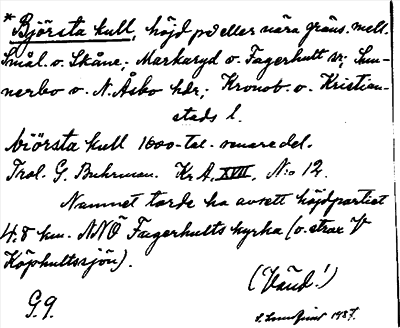 * Björsta kull, höjd på eller nära gräns. mell.
Smål. o. Skåne; Markaryd o. Fagerhult sr; Sun-
nerbo o. N. Åsbo hdr; Kronob. o. Kristian-
stads l.
biörsta kull 1600-tal. senare del.
Trol. G. Buhrman. Kr. A. XVIII, N:o 12.
Namnet torde ha avsett höjdpartiet
4.8 km. NNÖ Fagerhults kyrka (o. strax V
Köphultssjön).
(Vänd!)
G. g.
1937.